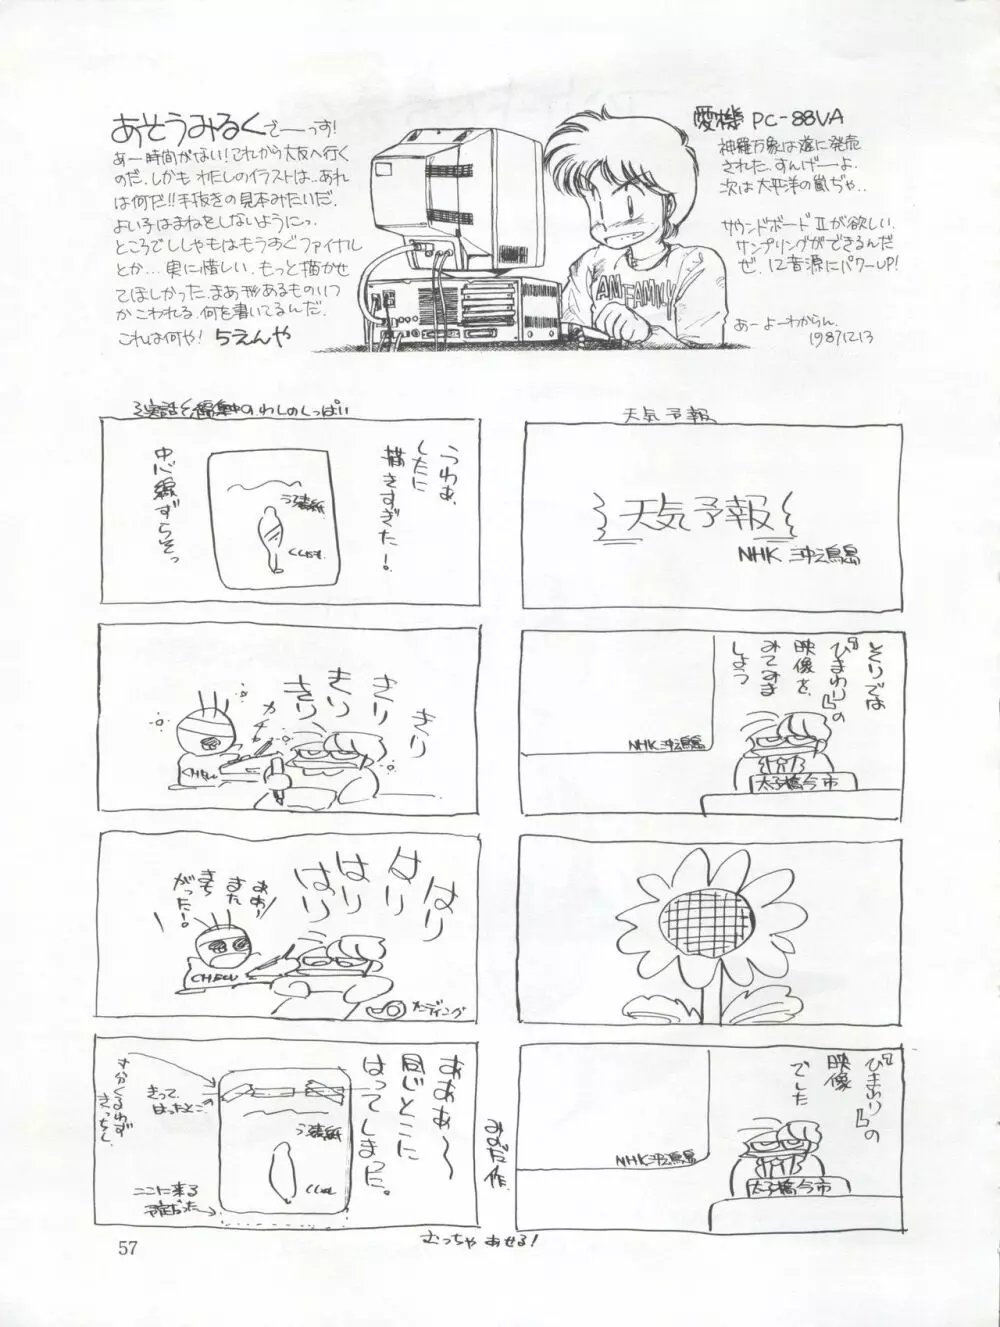 あそうみるくでーっす!
あー時間がない!これから大友へ行く
のだ.しかも わたしのイラストは..あれ
は何だ!!手抜きの見本みたいだ.
よい子はまねをしないようにっ.
ところでししゃもはもうすぐファイナル
とか...実に惜しい.もっと描かせ
てほしかった.まあ形あるものいつ
かこわれる.何を書いてるんだ.
これは何や! 5えんや
愛機 PC-88VA
神羅万象は遂に発売
された.すんげーよ.
次は太平洋の嵐ぢゃ..
サウンドボードⅡが欲しい.
サンプリングができるんだ
ぜ.12音源にパワーUP!
あーよーわからん.
1987.12.13
AM FAMNY
編集中の.わしのしっぱい
うわぁ.
したに
描きすぎた!
中心線ずらそっ
うら表紙
きり
きり
きり
きり
カチカチ
CHEW
はり
はり
はり
はり
ああ〜
また
まち
がった!
CHEW
カーディング
あああ〜
同じとこに
はってしまった。
きって.
はったとこ
すが分くるわず
きっちし.
うら表紙
ここに来る
予定だった→
みずた作.
むっちゃ あせる!
天気予報
天気予報
NHK 沖ノ鳥島
それでは
『ひまわり』の
映像を
みてみま
しょう
NHK 沖ノ鳥島
太子橋今市
『ひまわり』の
映像
でした
NHK 沖ノ鳥島
太子橋今市
57